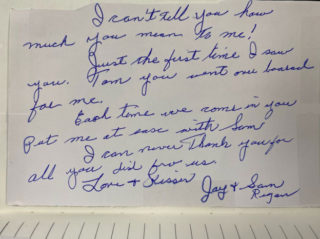 I can't tell you how
much you mean to me!
Just the first time I saw
you. Tom you went one
for me.
Each time we come in you
Put me at ease with Som
I can never Thank you for
all you did for us.
Love + Kisses
Jay + Sam
Regan